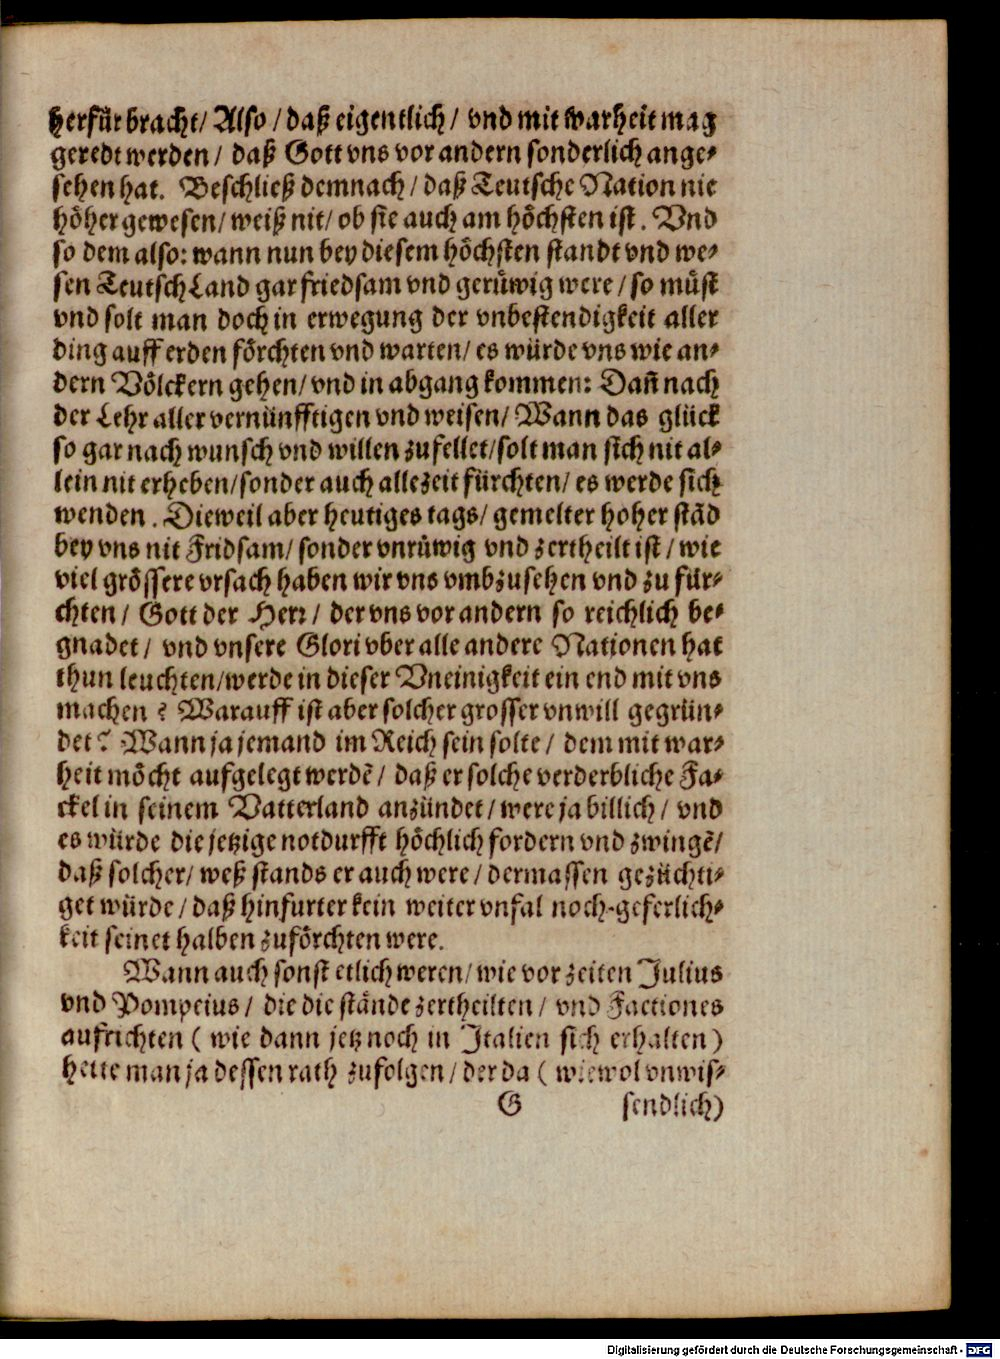 herfür bracht/ Also / daß eigentlich / vnd mit warheit mag
geredt werden / daß Gott vns vor andern sonderlich ange-
sehen hat. Beschließ demnach / daß Teutsche Nation nie
höher gewesen/ weiß nit/ ob sie auch am höchsten ist. Vnd
so dem also: wann nun bey diesem höchsten standt vnd we-
sen Teutsch Land gar friedsam vnd gerüwig were / so müst
vnd solt man doch in erwegung der vnbestendigkeit aller
ding auff erden förchten vnd warten/ es würde vns wie an-
dern Völckern gehen/ vnd in abgang kommen: Dañ nach
der Lehr aller vernünfftigen vnd weisen/ Wann das glück
so gar nach wunsch vnd willen zufellet/solt man sich nit al-
lein nit erheben/sonder auch allezeit fürchten/ es werde sich
wenden. Dieweil aber heutiges tags/ gemelter hoher stād
bey vns nit Fridsam/ sonder vnrüwig vnd zertheilt ist / wie
viel grössere vrsach haben wir vns vmbzusehen vnd zu für-
chten / Gott der Herr / der vns vor andern so reichlich be-
gnadet / vnd vnsere Glori vber alle andere Nationen hat
thun leuchten/werde in dieser Vneinigkeit ein end mit vns
machen ? Warauff ist aber solcher grosser vnwill gegrün-
det? Wann ja jemand im Reich sein solte / dem mit war-
heit möcht aufgelegt werdē / daß er solche verderbliche Fa-
ckel in seinem Vatterland anzündet / were ja billich / vnd
es würde die jetzige notdurfft höchlich fordern vnd zwingē/
daß solcher/ weß stands er auch were / dermassen gezüchti-
get würde / daß hinfurter kein weiter vnfal noch geferlich-
keit seinet halben zuförchten were.
Wann auch sonst etlich weren/ wie vor zeiten Julius
vnd Pompeius / die die stände zertheilten / vnd Factiones
aufrichten ( wie dann jetz noch in Italien sich erhalten )
hette man ja dessen rath zufolgen / der da ( wiewol vnwis-
G sendlich)
Digitalisierung gefördert durch die Deutsche Forschungsgemeinschaft - DFG